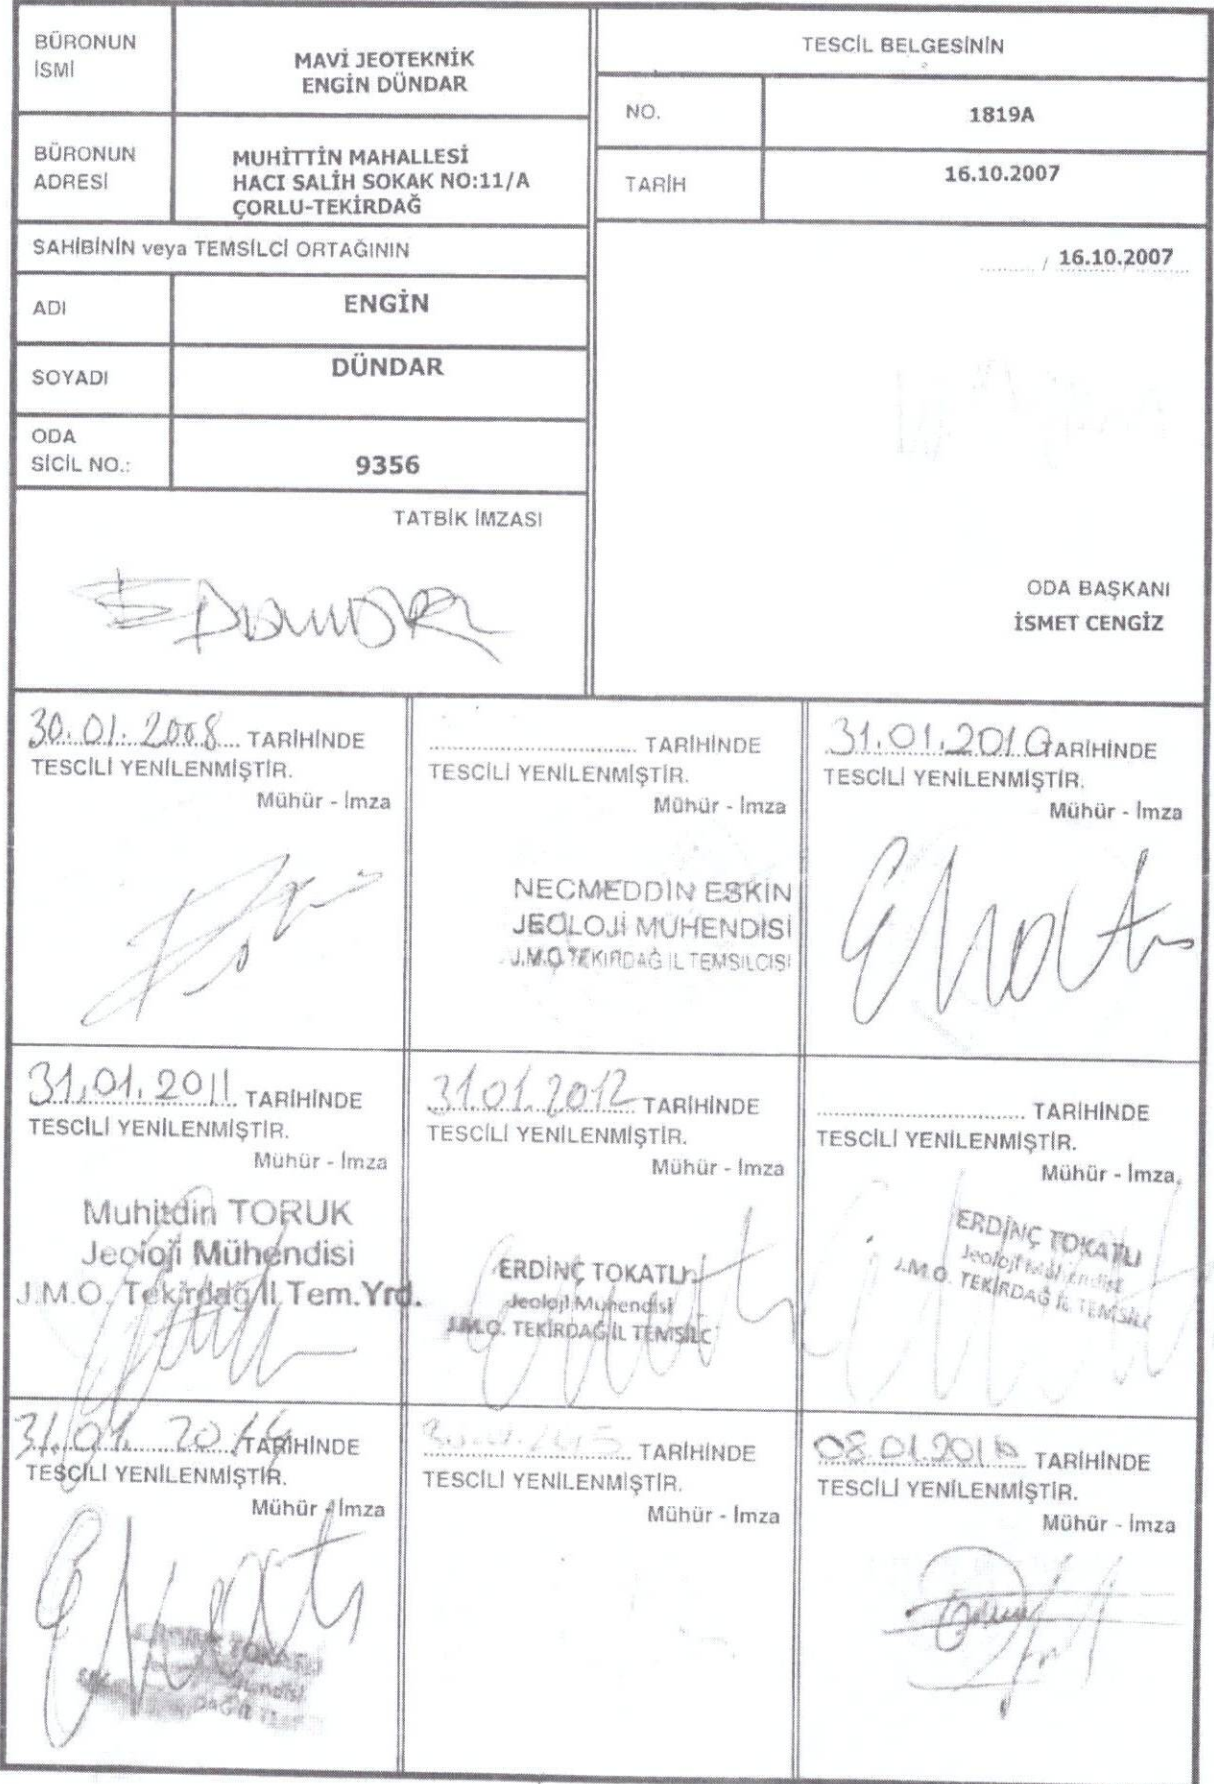 BÜRONUN
İSMİ
MAVİ JEOTEKNİK
ENGİN DÜNDAR
BÜRONUN
ADRESİ
MUHİTTİN MAHALLESİ
HACI SALİH SOKAK NO:11/A
ÇORLU-TEKİRDAĞ
SAHİBİNİN veya TEMSİLCİ ORTAĞININ
ADI
ENGİN
SOYADI
DÜNDAR
ODA
SİCİL NO.:
9356
TATBİK İMZASI
TESCİL BELGESİNİN
NO.
1819A
TARİH
16.10.2007
/ 16.10.2007
ODA BAŞKANI
İSMET CENGİZ
30.01.2008 TARİHİNDE
TESCİLİ YENİLENMİŞTİR.
Mühür - İmza
TARİHİNDE
TESCİLİ YENİLENMİŞTİR.
Mühür - İmza
NECMEDDİN ESKİN
JEOLOJİ MÜHENDİSİ
J.M.O.TEKİRDAĞ İL TEMSİLCİSİ
31.01.2010 TARİHİNDE
TESCİLİ YENİLENMİŞTİR.
Mühür - İmza
31.01.2011 TARİHİNDE
TESCİLİ YENİLENMİŞTİR.
Mühür - İmza
Muhitdin TORUK
Jeoloji Mühendisi
J.M.O. Tekirdağ İl.Tem.Yrd.
31.01.2012 TARİHİNDE
TESCİLİ YENİLENMİŞTİR.
Mühür - İmza
ERDİNÇ TOKATLI
Jeoloji Mühendisi
J.M.O. TEKİRDAĞ İL TEMSİLC
TARİHİNDE
TESCİLİ YENİLENMİŞTİR.
Mühür - İmza
ERDİNÇ TOKATLI
Jeoloji Mühendisi
J.M.O. TEKİRDAĞ İL TEMSİLC
31.01.2014 TARİHİNDE
TESCİLİ YENİLENMİŞTİR.
Mühür - İmza
TARİHİNDE
TESCİLİ YENİLENMİŞTİR.
Mühür - İmza
08.01.2016 TARİHİNDE
TESCİLİ YENİLENMİŞTİR.
Mühür - İmza